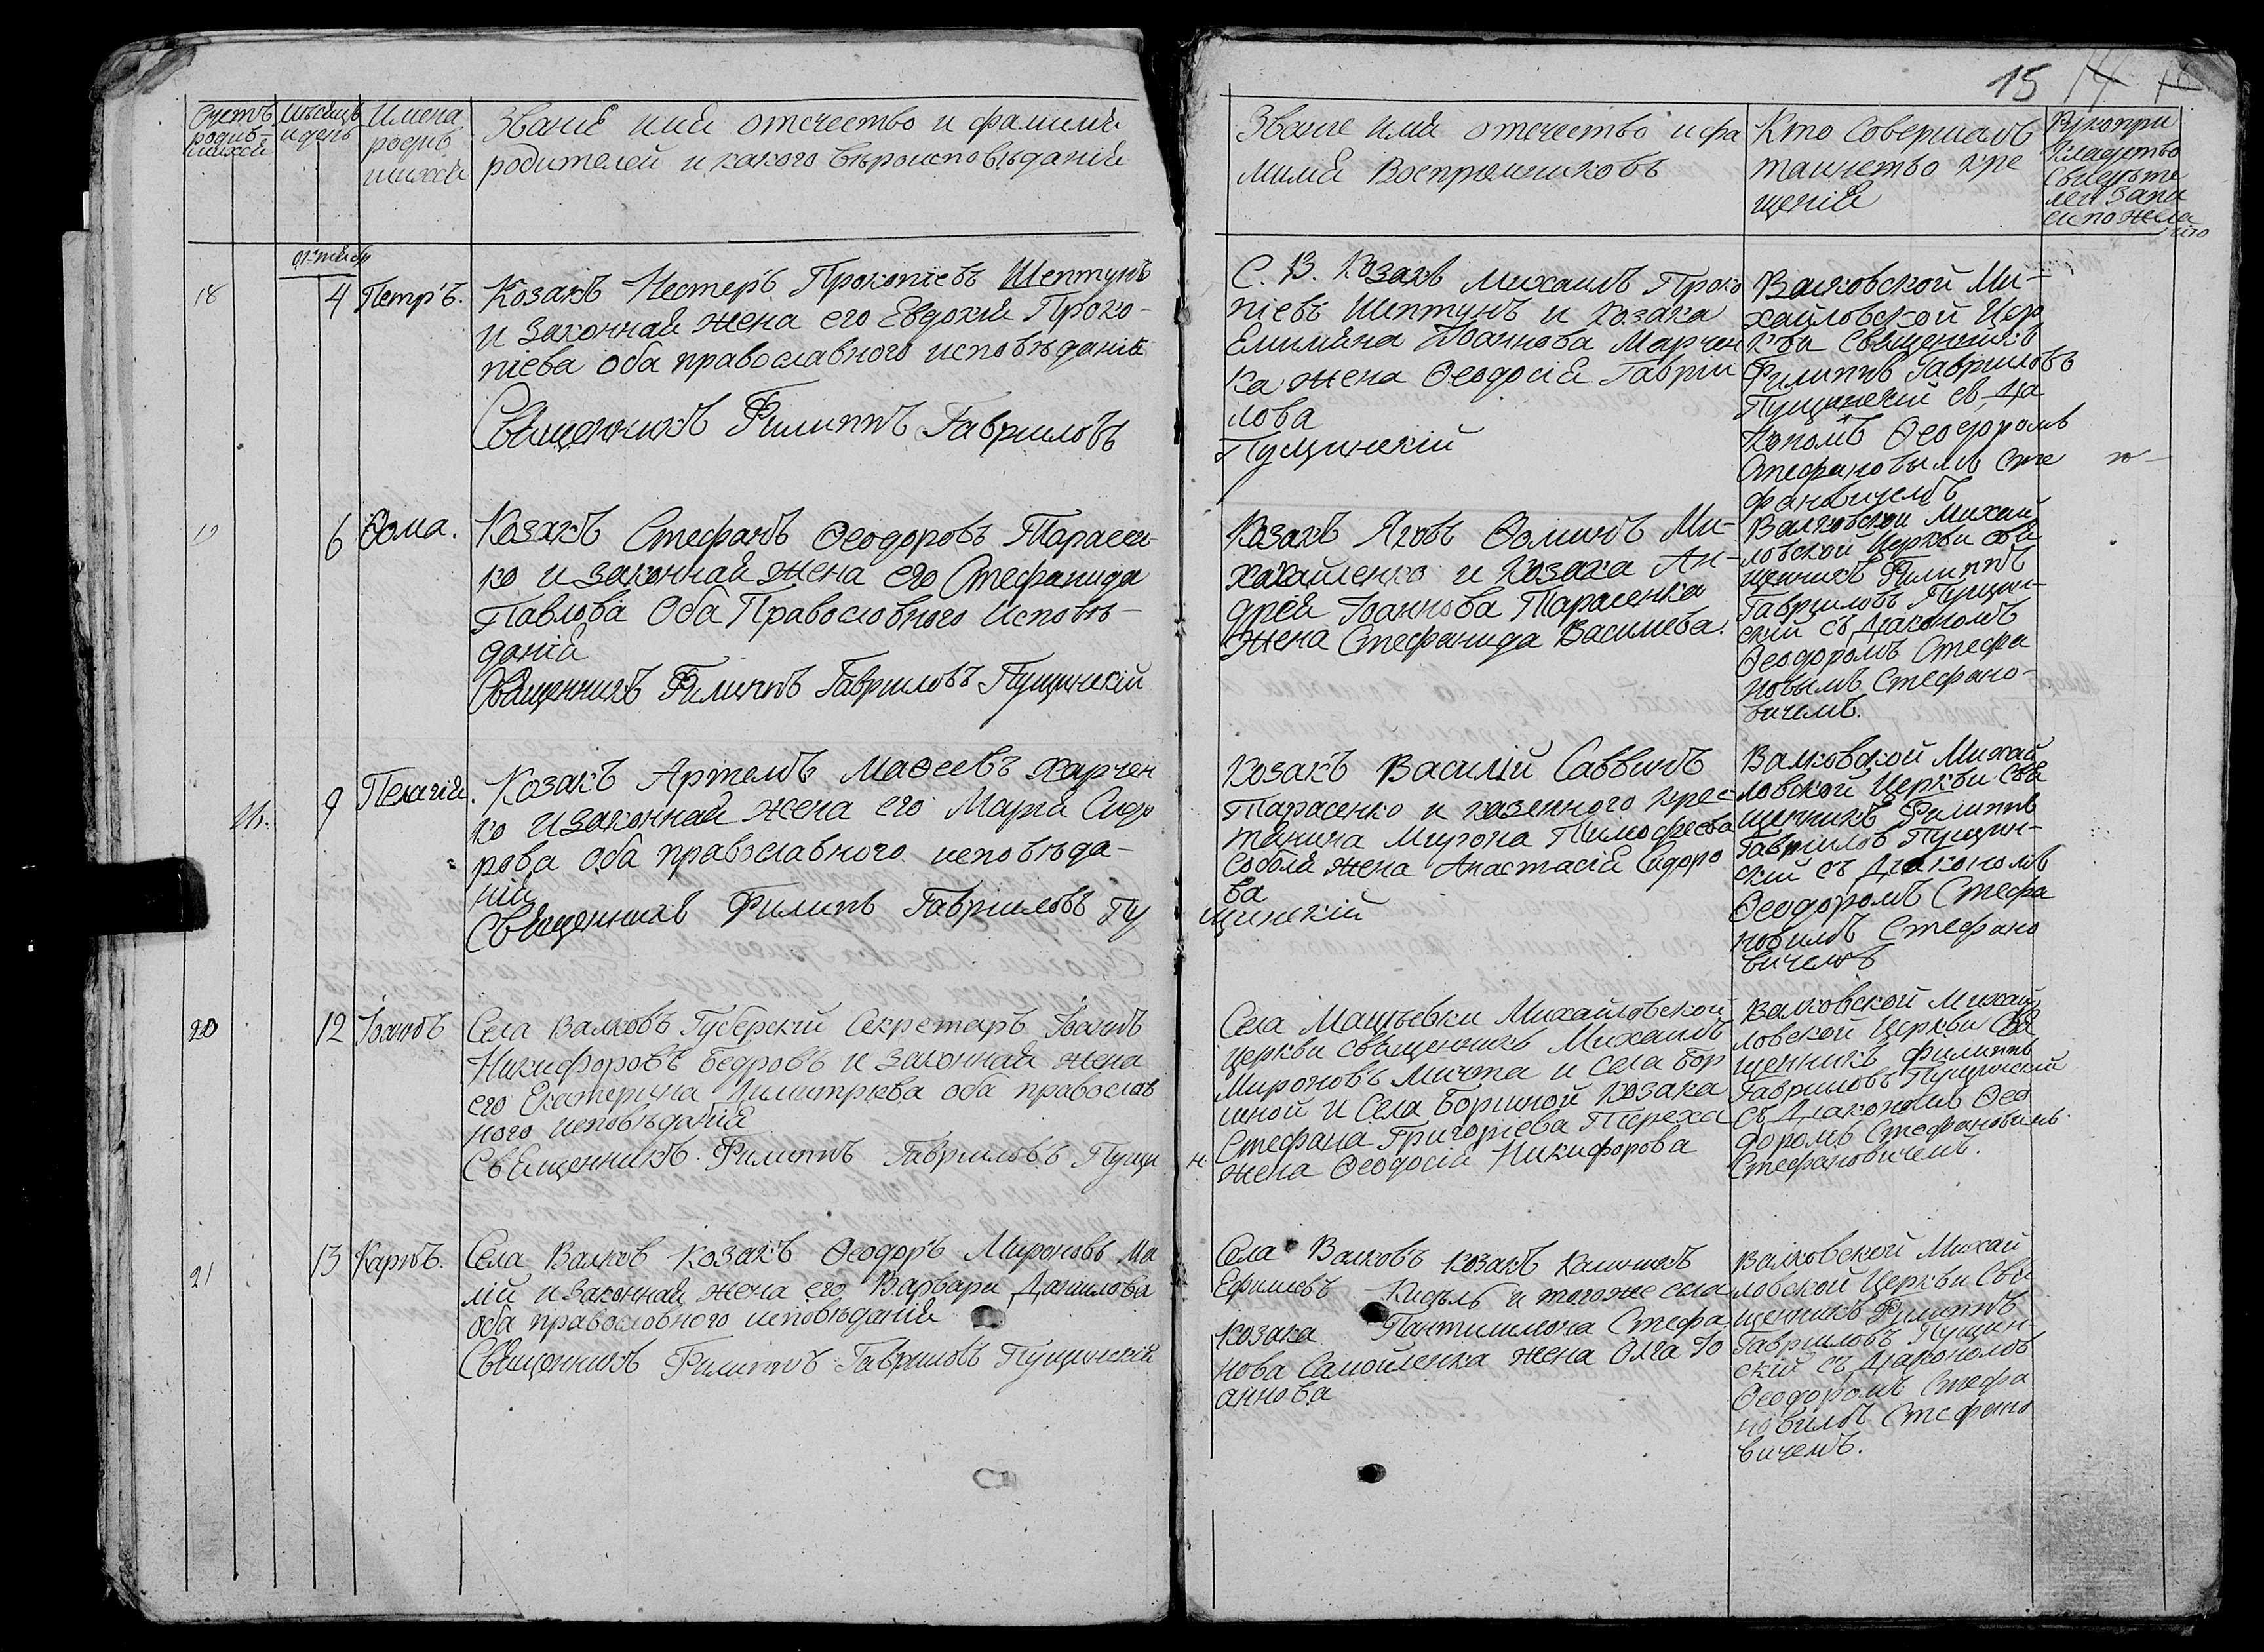 15 14
Счетъ
родив-
шихся
Мѣсяцъ
и день
Имена
родив
шихся
Званія имя отечество и фамилія
родителей и какого вѣроисповѣданія
Званіе имя отечество и фа
милія Воспріемниковъ
Кто Совершалъ
таинство кре
щенія
Рукопри
кладство
Свидѣте
лей запи
си по жела
нію
Октябр
18
4
Петръ.
Козакъ Нестеръ Прокопіевъ Шептунъ
и законная жена его Евдокія Проко-
піева оба православного исповѣданія
Священникъ Филиппъ Гавриловъ
С. В. Козакъ Михаилъ Проко
піевъ Шептунъ и козака
Емиляна Иоаннова Марчен
ка жена Ѳеодосія Гаврии
лова
Пущинскій
Валковской Ми-
хайловской Цер
кви Священникъ
Филиппъ Гавриловъ
Пущинскій съ Диа
кономъ Ѳеодоромъ
Стефановымъ Сте
фановичемъ
19
6
Ѳома.
Козакъ Стефанъ Ѳеодоровъ Тарасен-
ко и законная жена его Стефанида
Павлова Оба Православного Исповѣ-
данія
Священникъ Филиппъ Гавриловъ Пущинскій
Козакъ Яковъ Ѳоминъ Ми-
хахайленко и Козака Ан-
дрея Иоаннова Тарасенка
жена Стефанида Василиева.
Валковской Михай
ловской Церкви Свя
щенникъ Филиппъ
Гавриловъ Пущин-
скій съ Диакономъ
Ѳеодоромъ Стефа
новымъ Стефано-
вичемъ.
16.
9
Пелагія.
Козакъ Артемъ Маѳеевъ Харчен
ко и законная жена его Марія Сидо
рова оба православного исповѣда-
нія
Священникъ Филипъ Гавриловъ Пу
Козакъ Василій Саввинъ
Тарасенко и казенного крес-
тянина Мирона Тимофеева
Соболя жена Анастасія Сидоро
ва
щинскій
Валковской Михай
ловской Церкви Свя
щенникъ Филиппъ
Гавриіловъ Пущин-
скій съ Диакономъ
Ѳеодоромъ Стефа
новимъ Стефано
вичемъ
20
12
Іоаннъ
Села Валковъ Губерскій Секретаръ Іоаннъ
Никифоровъ Бедровъ и законная жена
его Екатерина Димитріева оба православ
ного исповѣданія
Священникъ Филиппъ Гавриловъ Пущи
н
Села Мацѣевки Михайловской
церкви священникъ Михаилъ
Мироновъ Мичта и села Бор
шной и Села Боршной Козака
Стефана Григориева Тереха
жена Ѳеодосія Никифорова
Валковской Михай
ловской Церкви Свя
щенникъ Филиппъ
Гавриловъ Пущинскій
съ Диакономъ Ѳео
доромъ Стефановимъ
Стефановичемъ.
21
13
Карпъ.
Села Валковъ козакъ Ѳеодоръ Мироновъ Ма
лій и законная жена его Варвара Данилова
оба православного исповѣданія
Священникъ Филиппъ Гавриловъ Пущинскій
Села Валковъ козакъ Калиникъ
Ефимовъ Кисѣль и тогоже села
козака Пантилимона Стефа
нова Самойленка жена Олга Іо
аннова
Валковской Михай
ловской Церкви Свя
щенникъ Филиппъ
Гавриловъ Пущин-
скій съ Диакономъ
Ѳеодоромъ Стефа
новимъ Стефано
вичемъ.